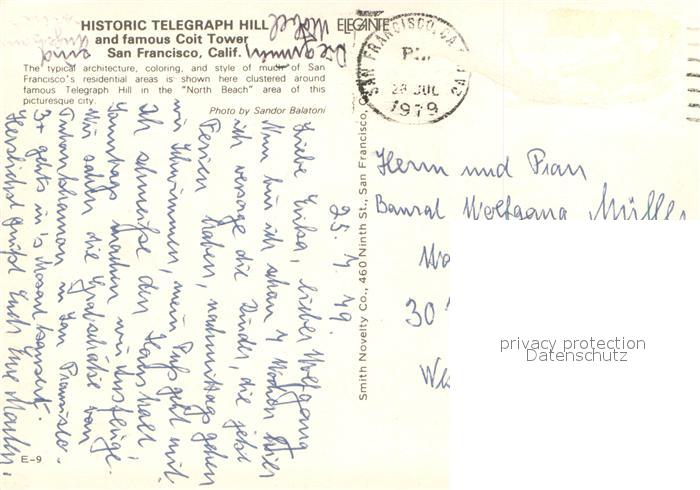 HISTORIC TELEGRAPH HILL
and famous Coit Tower
San Francisco, Calif.
The typical architecture, coloring, and style of much of San
Francisco's residential areas is shown here clustered around
famous Telegraph Hill in the "North Beach" area of this
picturesque city.
Photo by Sandor Balatoni
ELEGANTE
SAN FRANCISCO, CA
PM
28 JUL
1979
Smith Novelty Co., 460 Ninth St., San Francisco,
25. 7. 79.
Liebe Erika, lieber Wolfgang
Nun bin ich schon 4 Wochen hier
ich versorge die Kinder, die jetzt
Ferien haben, nachmittags gehen
wir schwimmen, mein Fuß geht mit.
Ich schmeiße den Haushalt
Sonntags machen wir Ausflüge.
Wir sahen die Grabschätze von
Tutanchamon in San Francisco.
geht's in's Mozartkonzert.
Herzlichst grüßt Euch Eure
Herrn und Frau
Baurat Wolfgang Müller
30
privacy protection
Datenschutz
E-9